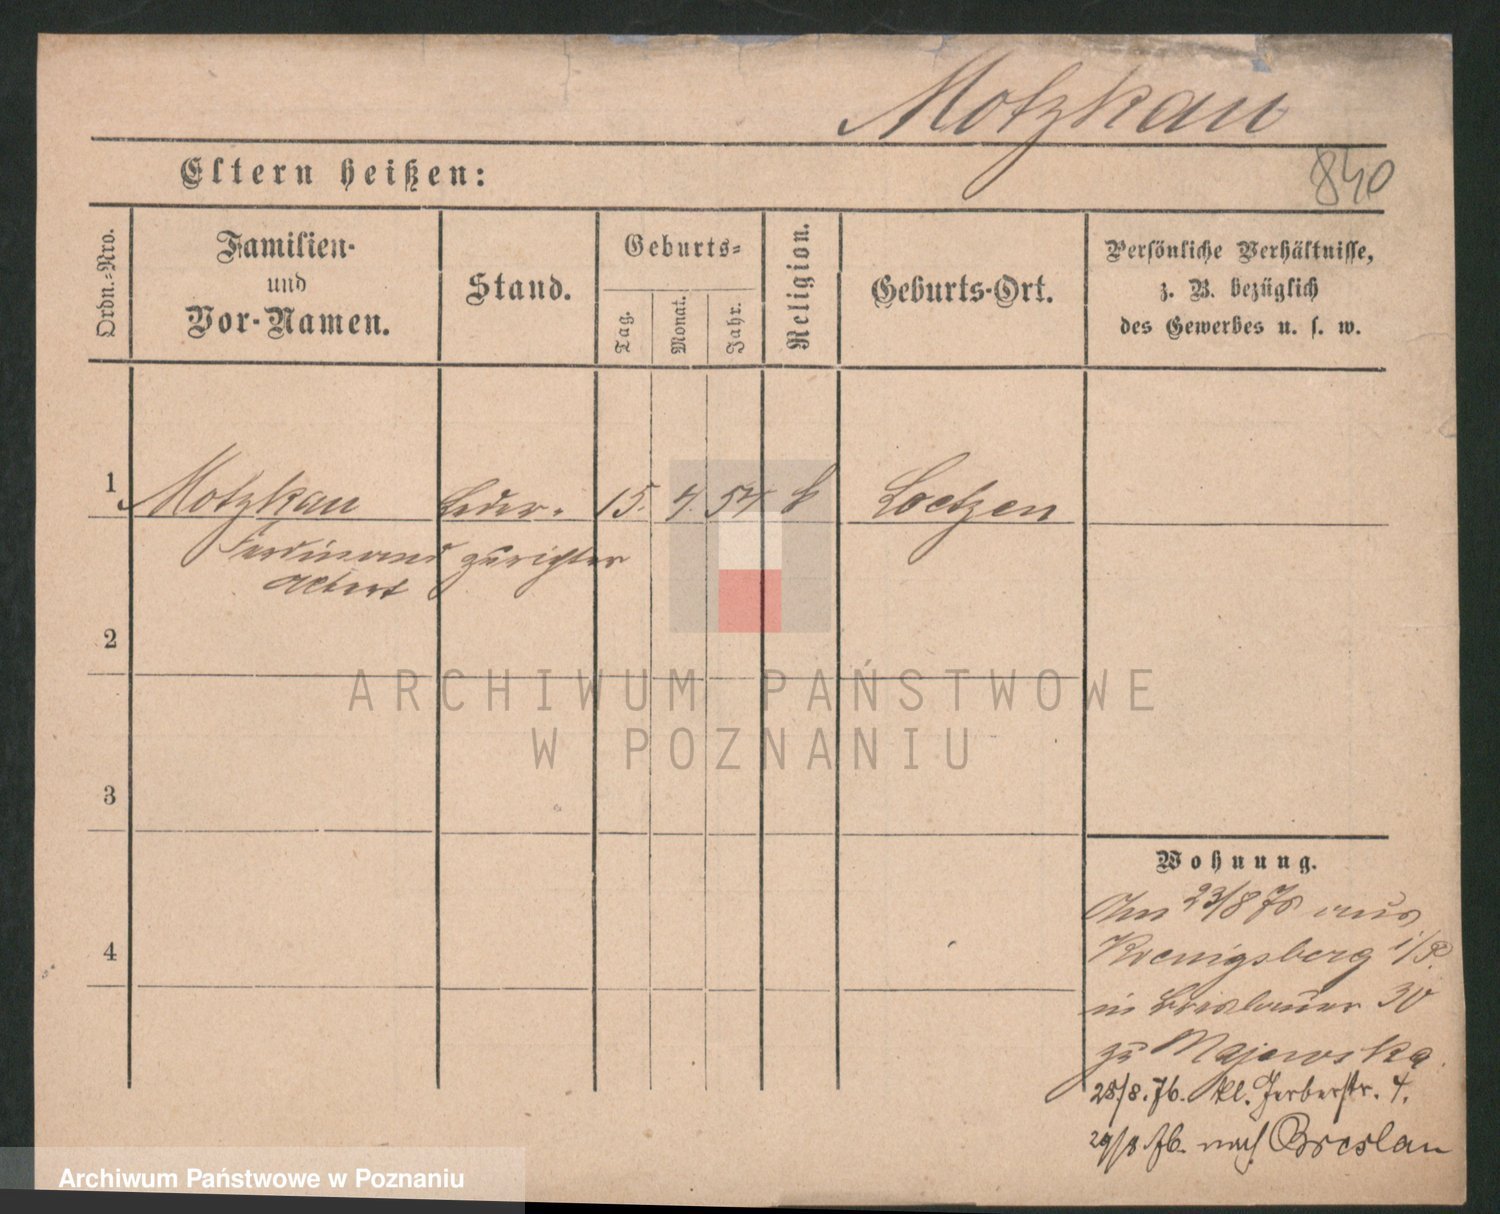 Motzkau
840
Eltern heißen:
Ordn.-Nro.
Familien-
und
Vor-Namen.
Stand.
Geburts-
Tag.
Monat.
Jahr.
Religion.
Geburts-Ort.
Persönliche Verhältnisse,
z. B. bezüglich
des Gewerbes u. s. w.
1 Motzkau Leder- 15. 4. 54 Loetzen
Ferdinand zurichter
Albert
2
3
4
Wohnung.
Am 23/8 76 aus
Koenigsberg i/P.
in Breslauer 30
zu Majewska
28/8. 76. kl. Gerberstr. 4.
29/8 76. nach Breslau
ARCHIWUM PAŃSTWOWE
W POZNANIU
Archiwum Państwowe w Poznaniu